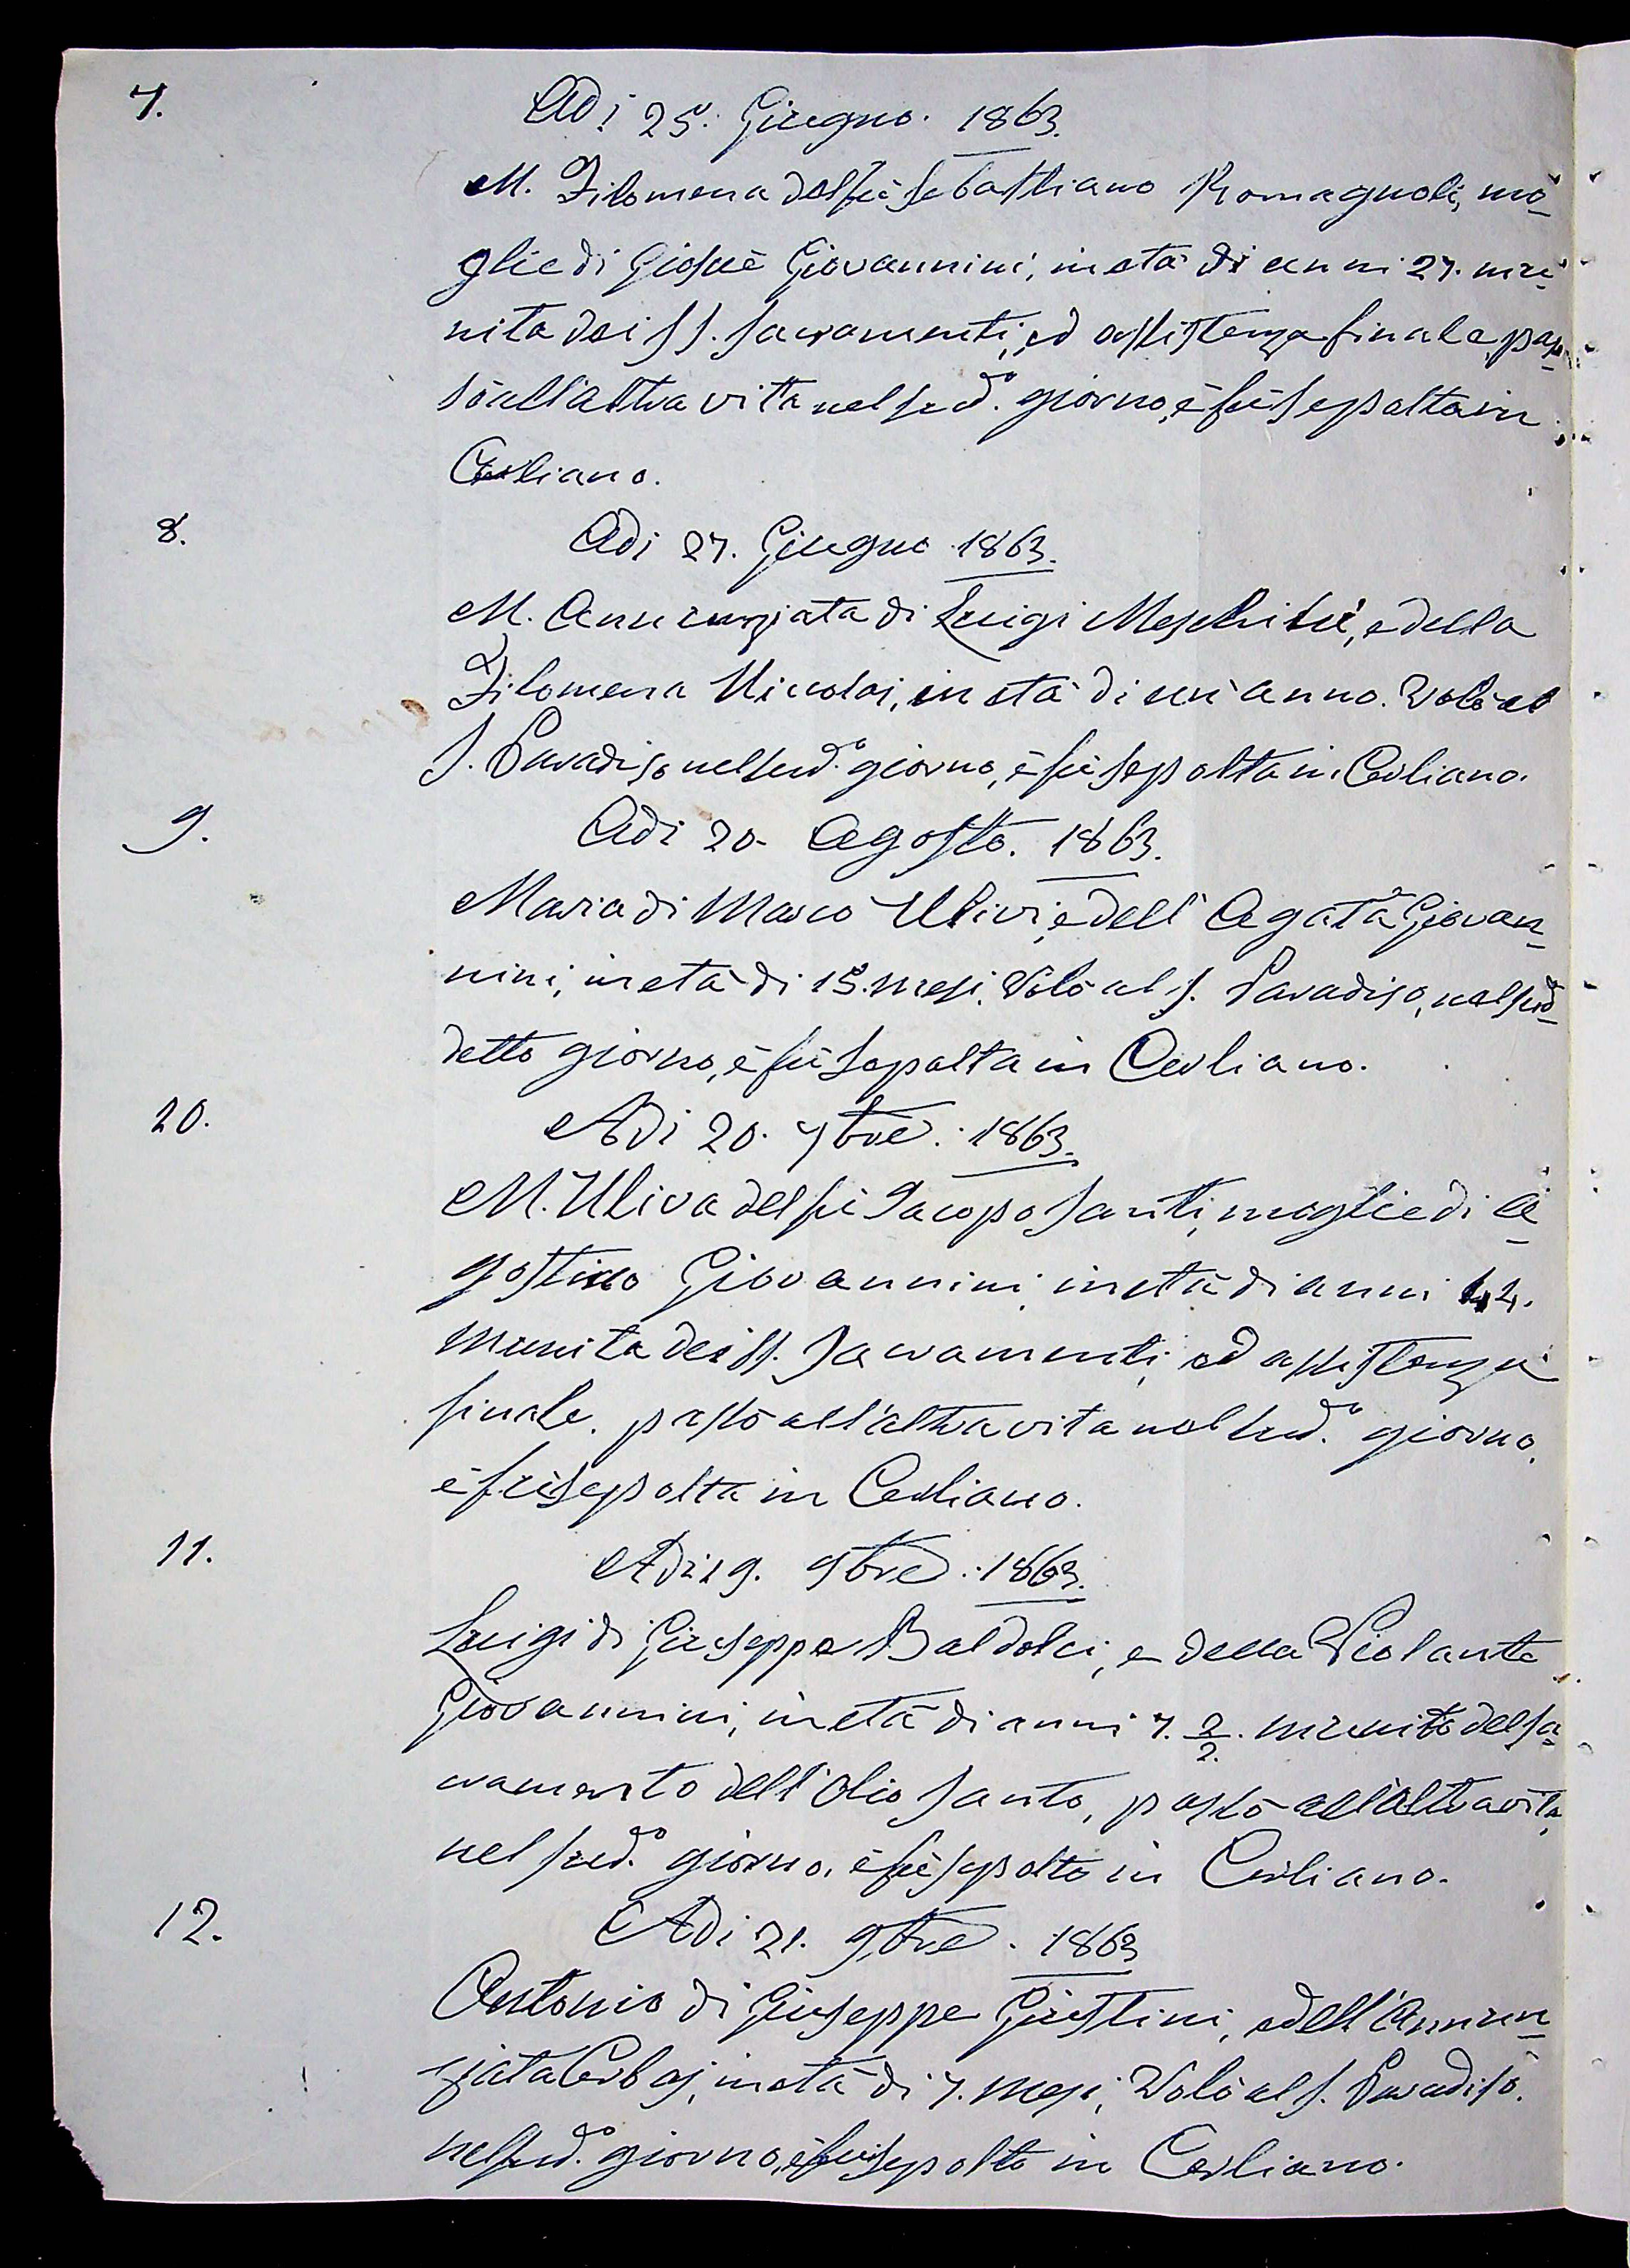 7. Adi 25. Giugno. 1863.
M. Filomena del fù Sebastiano Romagnoli, mo-
glie di Giosuè Giovannini, in età di anni 27. mu-
nita dei SS. Sacramenti, ed assistenza finale, pas-
sò all'altra vita nel sud.º giorno, è fù sepolta in
Cerliano.
8. Adi 27. Giugno 1863.
M. Annunziata di Luigi e della
Filomena Niccolai, in età di un'anno. Volò al
S. Paradiso nel sud.º giorno, è fù sepolta in Cerliano.
9. Adi 20. Agosto. 1863.
Maria di Marco Ulivi, e dell'Agata Giovan-
nini, in età di 15. mesi, Volò al S. Paradiso, nel sud-
detto giorno, è fù sepolta in Cerliano.
10. Adi 20. 7bre. 1863.
M. Uliva del fù Jacopo Santi, moglie di A-
gostino Giovannini, in età di anni 44.
munita dei SS. Sacramenti, ed assistenza
finale. passò all'altra vita nel sud.º giorno,
è fù sepolta in Cerliano.
11. Adi 19. 9bre. 1863.
Luigi di Giuseppe Baldolci, e della Violante
Giovannini, in età di anni 7. ½. munito del Sa-
cramento dell'Olio Santo, passò all'altra vita,
nel sud.º giorno, è fù sepolto in Cerliano.
12. Adi 21. 9bre. 1863
Antonio di Giuseppe Giustini, e dell'Annun-
ziata Cerbaj, in età di 7. mesi, Volò al S. Paradiso.
nel sud.º giorno, è fù sepolto in Cerliano.